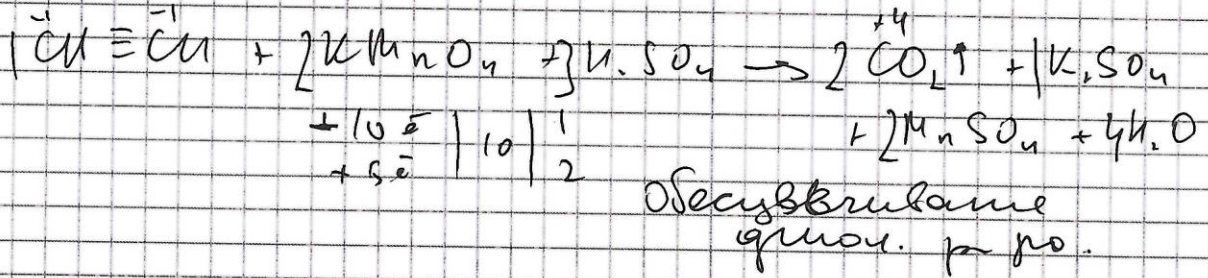 -1 -1 +4
1CH ≡ CH + 2KMnO4 + 3H2SO4 → 2CO2↑ + 1K2SO4
+ 2MnSO4 + 4H2O
+ 10ē | 10 | 1
+ 5ē 2
Обесцвечивание
фиол. р-ра.